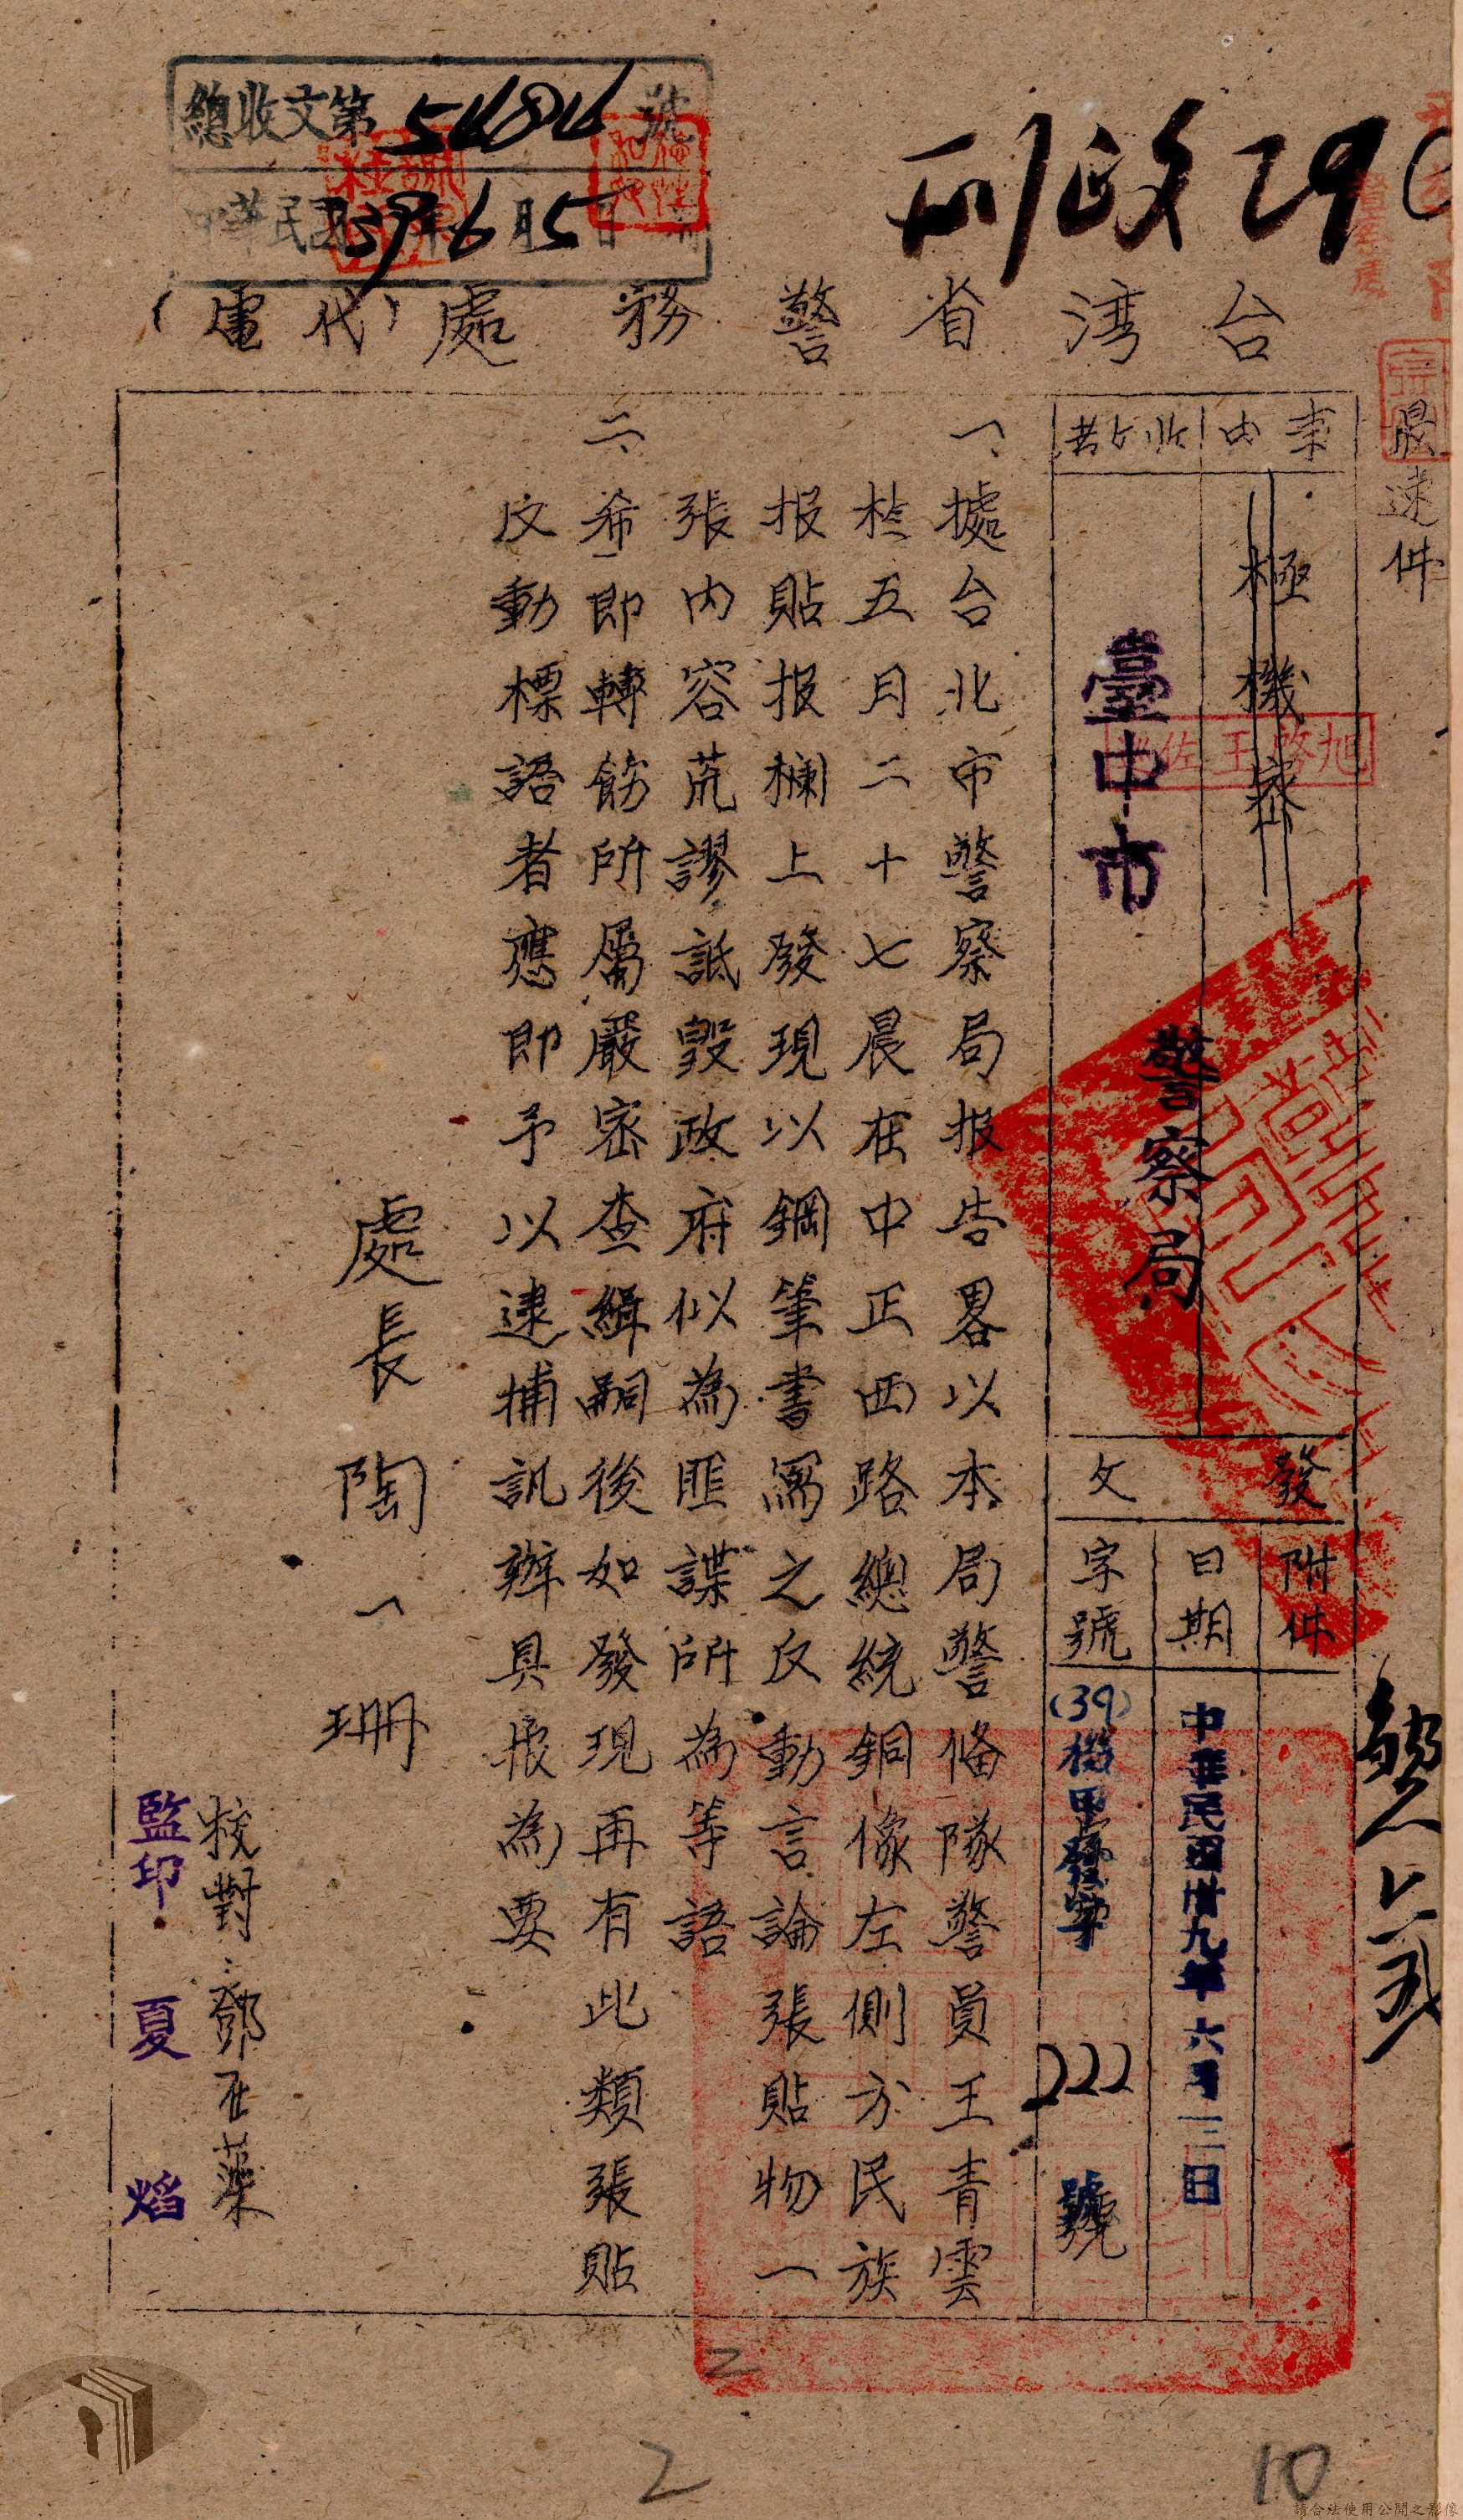 總收文第 號
中華民國39年6月5日
刑政29
台灣省警務處(代電)
最速件
事由
極機密
收文者
臺中市警察局
發文
附件
日期
中華民國卅九年六月三日
字號
(39) 222號
一、據台北市警察局报告畧以本局警俻隊警員王青雲
於五月二十七晨在中正西路總統銅像左側方民族
报貼报欄上發現以鋼筆書寫之反動言論張貼物一
張內容荒謬詆毀政府似為匪諜所為等語
二、希即轉飭所屬嚴密查緝嗣後如發現再有此類張貼
反動標語者應即予以逮捕訊辦具报為要
處長陶一珊
校對：鄧
監印 夏焰
2
2
10
請合法使用公開之影像